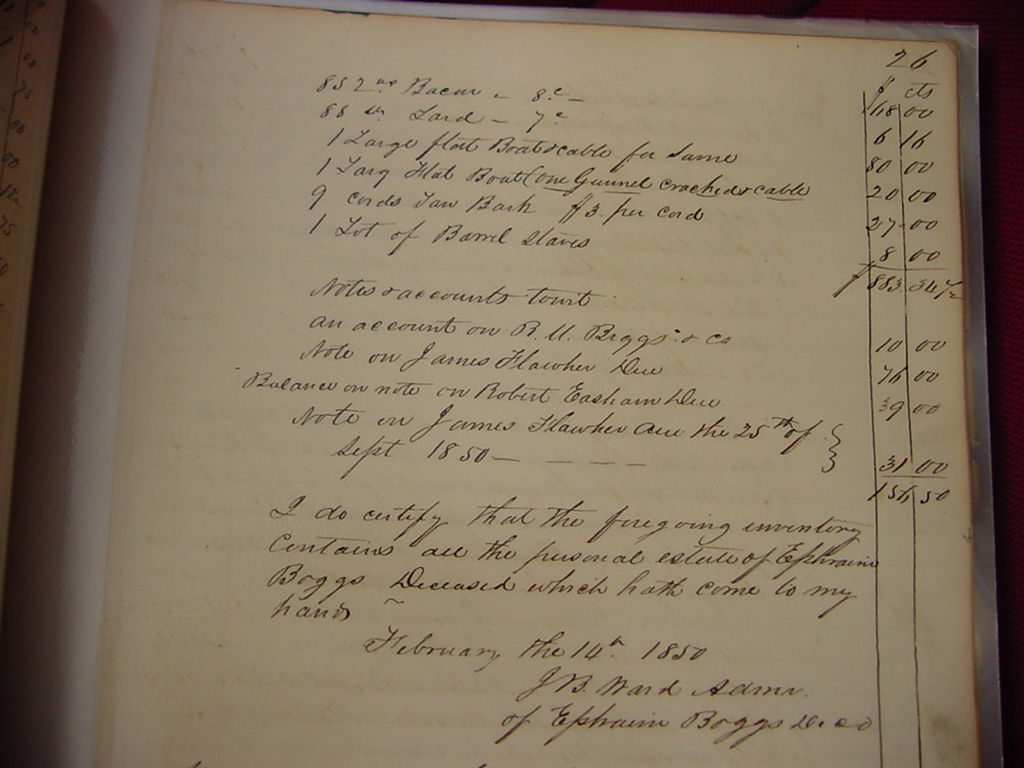 26
$ cts
852 lbs Bacon - 8c - 68 00
88 lb Lard - 7c 6 16
1 Large flat Boat & cable for Same 80 00
1 Larg Flat Boat (one Gunnel cracked & cable 20 00
9 cords Tan Bark $3. per cord 27 00
1 Lot of Barrel Staves 8 00
$ 883 34 1/2
Notes & accounts towit
an account on B. U. Boggs & co 10 00
Note on James Hawker Due 76 00
Balance on note on Robert Easham Due 39 00
Note on James Hawker due the 25th of
Sept 1850 - - - - - 31 00
156 50
I do certify that the foregoing inventory
Contains all the personal estate of Ephraim
Boggs Deceased which hath come to my
hands
February the 14th 1850
J B. Ward Admr.
of Ephraim Boggs Decd